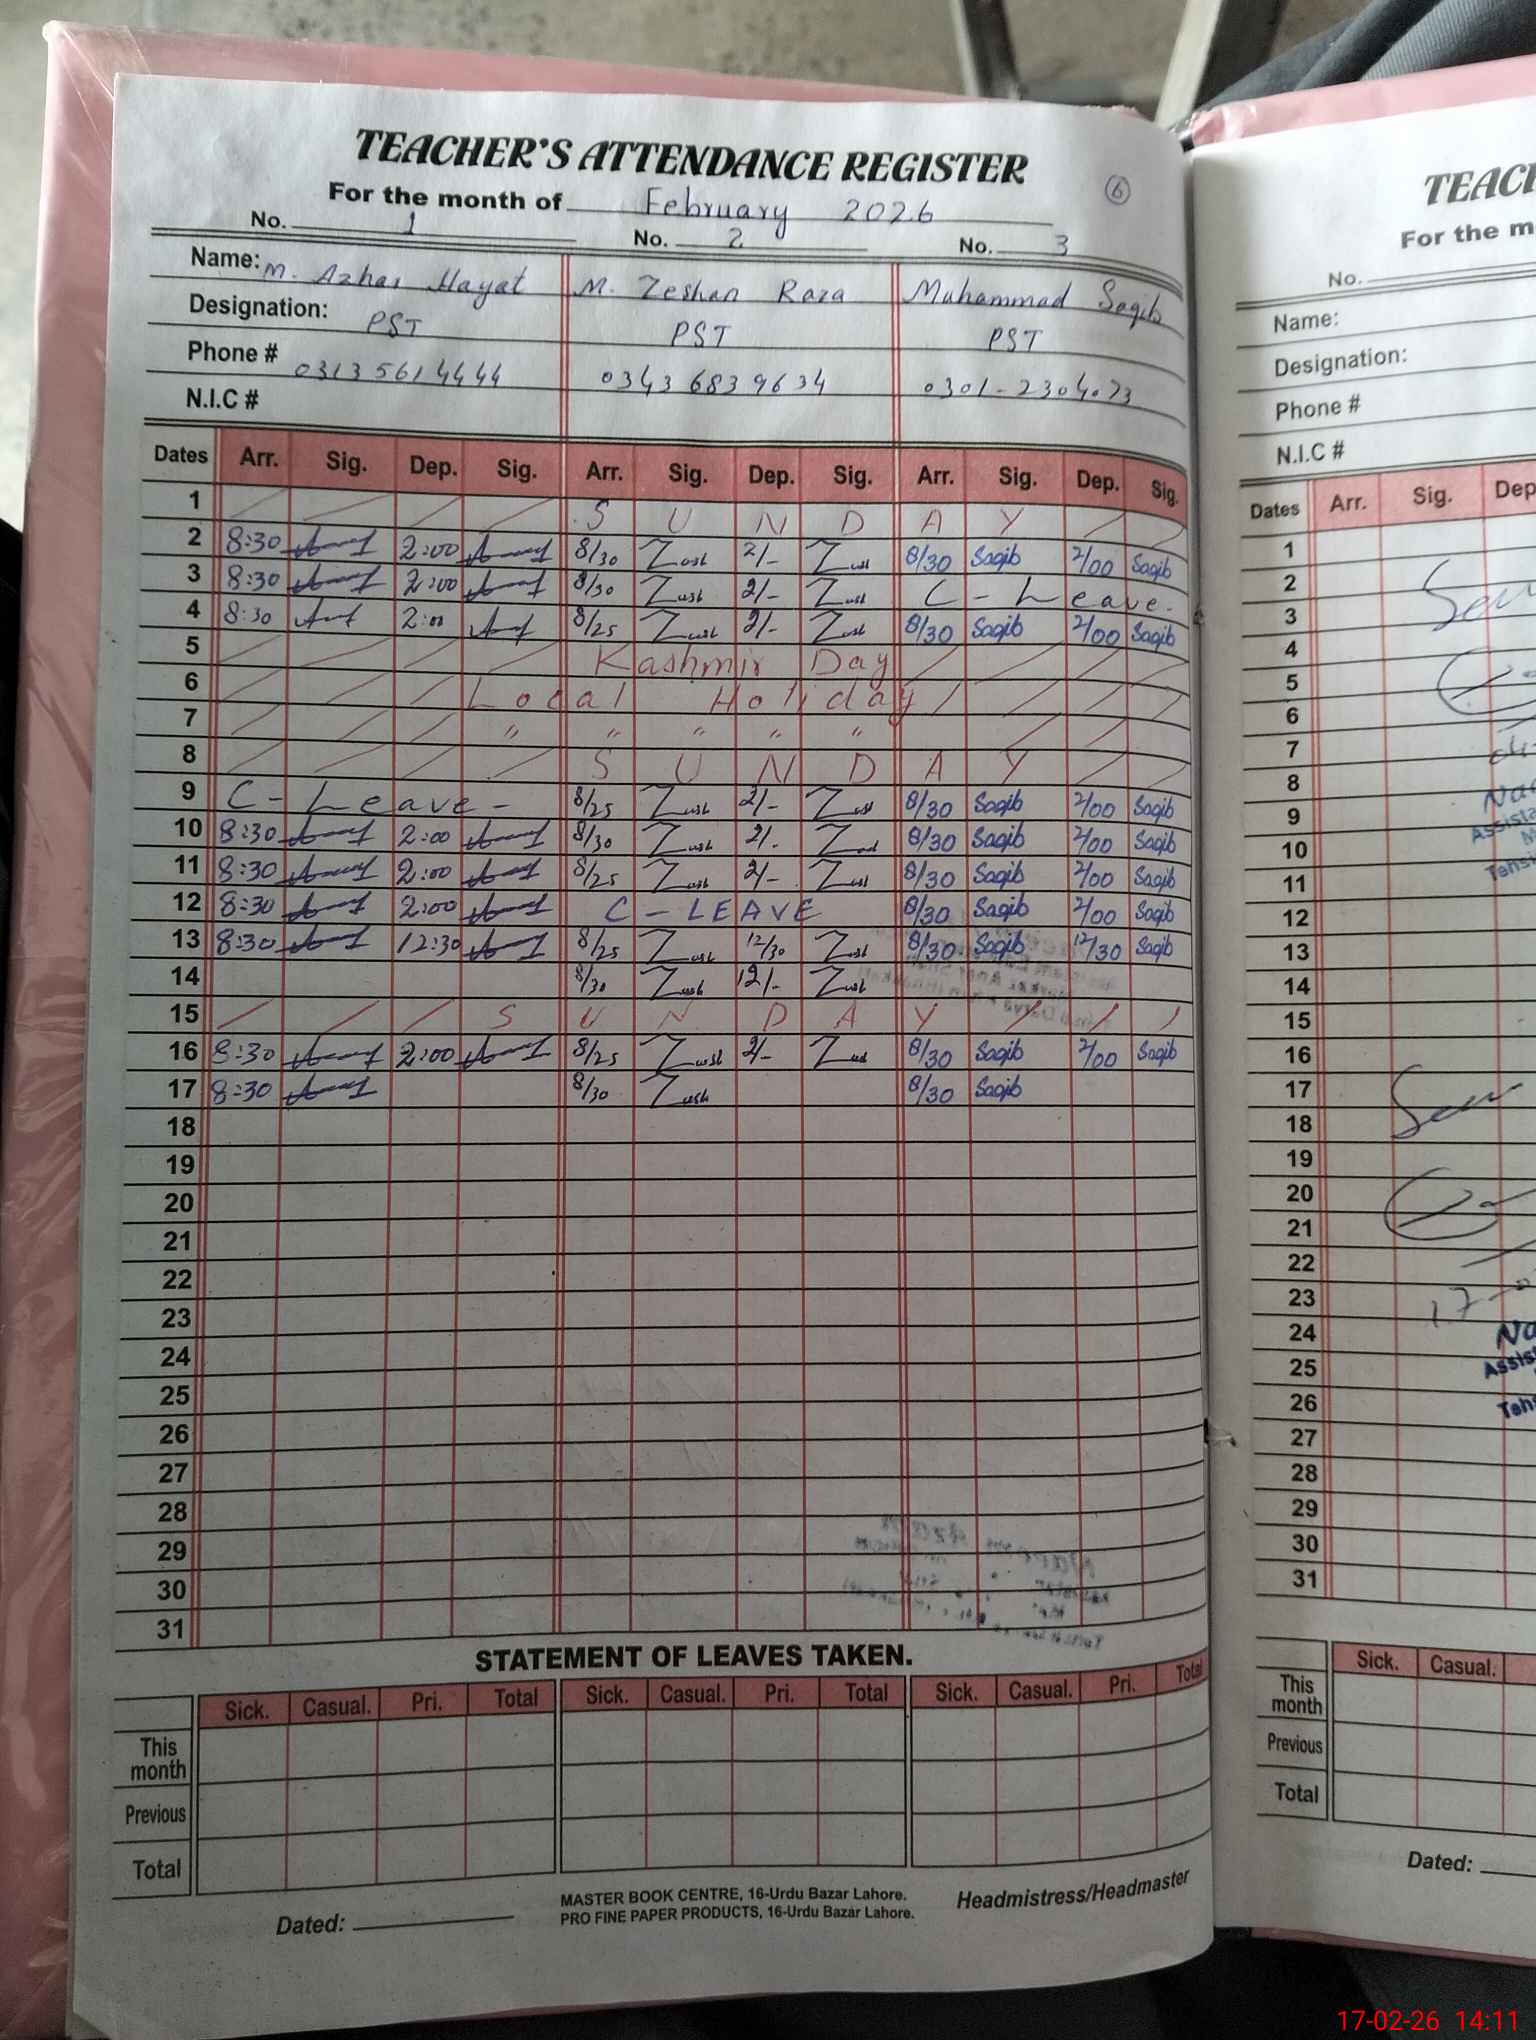 TEACHER'S ATTENDANCE REGISTER
6
For the month of February 2026
No. 1 No. 2 No. 3
Name: M. Azhar Hayat M. Zeshan Raza Muhammad Saqib
Designation: PST PST PST
Phone # 03135614444 03436839634 0301-2304073
N.I.C #
Dates Arr. Sig. Dep. Sig. Arr. Sig. Dep. Sig. Arr. Sig. Dep. Sig.
1 S U N D A Y
2 8:30 2:00 8/30 2/- 8/30 Saqib 2/00 Saqib
3 8:30 2:00 8/30 2/- C - Leave -
4 8:30 2:00 8/25 2/- 8/30 Saqib 2/00 Saqib
5 Kashmir Day
6 Local Holiday
7 " " " " "
8 S U N D A Y
9 C - Leave - 8/25 2/- 8/30 Saqib 2/00 Saqib
10 8:30 2:00 8/30 2/- 8/30 Saqib 2/00 Saqib
11 8:30 2:00 8/25 2/- 8/30 Saqib 2/00 Saqib
12 8:30 2:00 C - LEAVE 8/30 Saqib 2/00 Saqib
13 8:30 12:30 8/25 12/30 8/30 Saqib 12/30 Saqib
14 8/30 12/-
15 S U N D A Y
16 8:30 2:00 8/25 2/- 8/30 Saqib 2/00 Saqib
17 8:30 8/30 8/30 Saqib
18
19
20
21
22
23
24
25
26
27
28
29
30
31
STATEMENT OF LEAVES TAKEN.
Sick. Casual. Pri. Total Sick. Casual. Pri. Total Sick. Casual. Pri. Total
This
month
Previous
Total
MASTER BOOK CENTRE, 16-Urdu Bazar Lahore.
PRO FINE PAPER PRODUCTS, 16-Urdu Bazar Lahore.
Headmistress/Headmaster
Dated:
TEACH
For the m
No.
Name:
Designation:
Phone #
N.I.C #
Dates Arr. Sig. Dep
1
2
3
4
5
6
7
8
9
10
11
12
13
14
15
16
17
18
19
20
21
22
23
24
25
26
27
28
29
30
31
Sick. Casual.
This
month
Previous
Total
Dated:
17-02-26 14:11